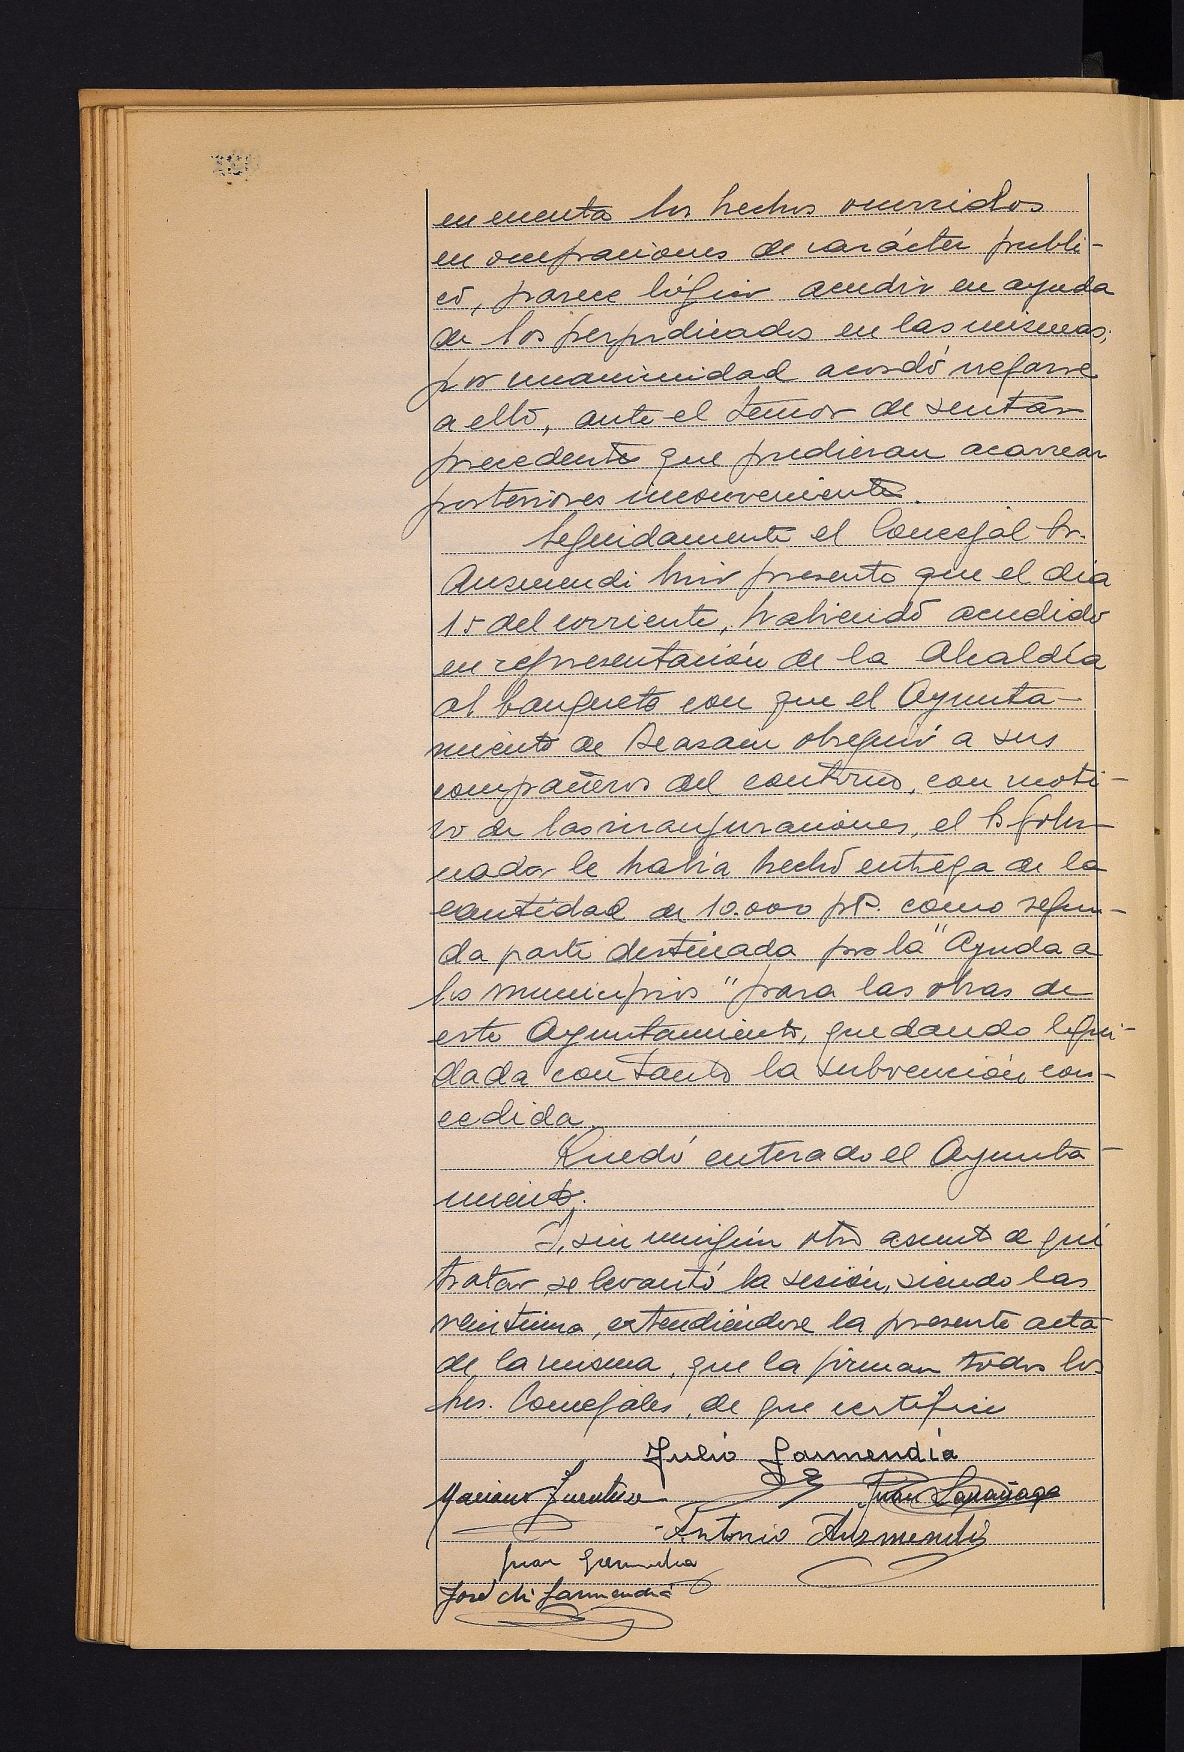 en cuenta los hechos ocurridos
en ocupaciones de carácter públi-
co, parece lógico acudir en ayuda
de los perjudicados en las mismas;
por unanimidad acordó negarse
a ello, ante el temor de sentar
precedente que pudieran acarrear
posteriores inconvenientes.
Seguidamente el Concejal Sr.
Auzmendi hizo presente que el día
15 del corriente, habiendo acudido
en representación de la Alcaldía
al banquete con que el Ayunta-
miento de Beasain obsequió a sus
compañeros del contorno, con moti-
vo de las inauguraciones, el Sr Gober-
nador le había hecho entrega de la
cantidad de 10.000 pts. como segun-
da parte destinada por la "Ayuda a
los municipios" para las obras de
este Ayuntamiento, quedando liqui-
dada con tanto la subvención con-
cedida.
Quedó enterado el Ayunta-
miento.
Y, sin ningún otro asunto de que
tratar, se levantó la sesión, siendo las
veintiuna, extendiéndose la presente acta
de la misma, que la firman todos los
Sres. Concejales, de que certifico
Julio Garmendia
Mariano Juan Larrañaga
Antonio Auzmendi
Juan
José Mi Garmendia